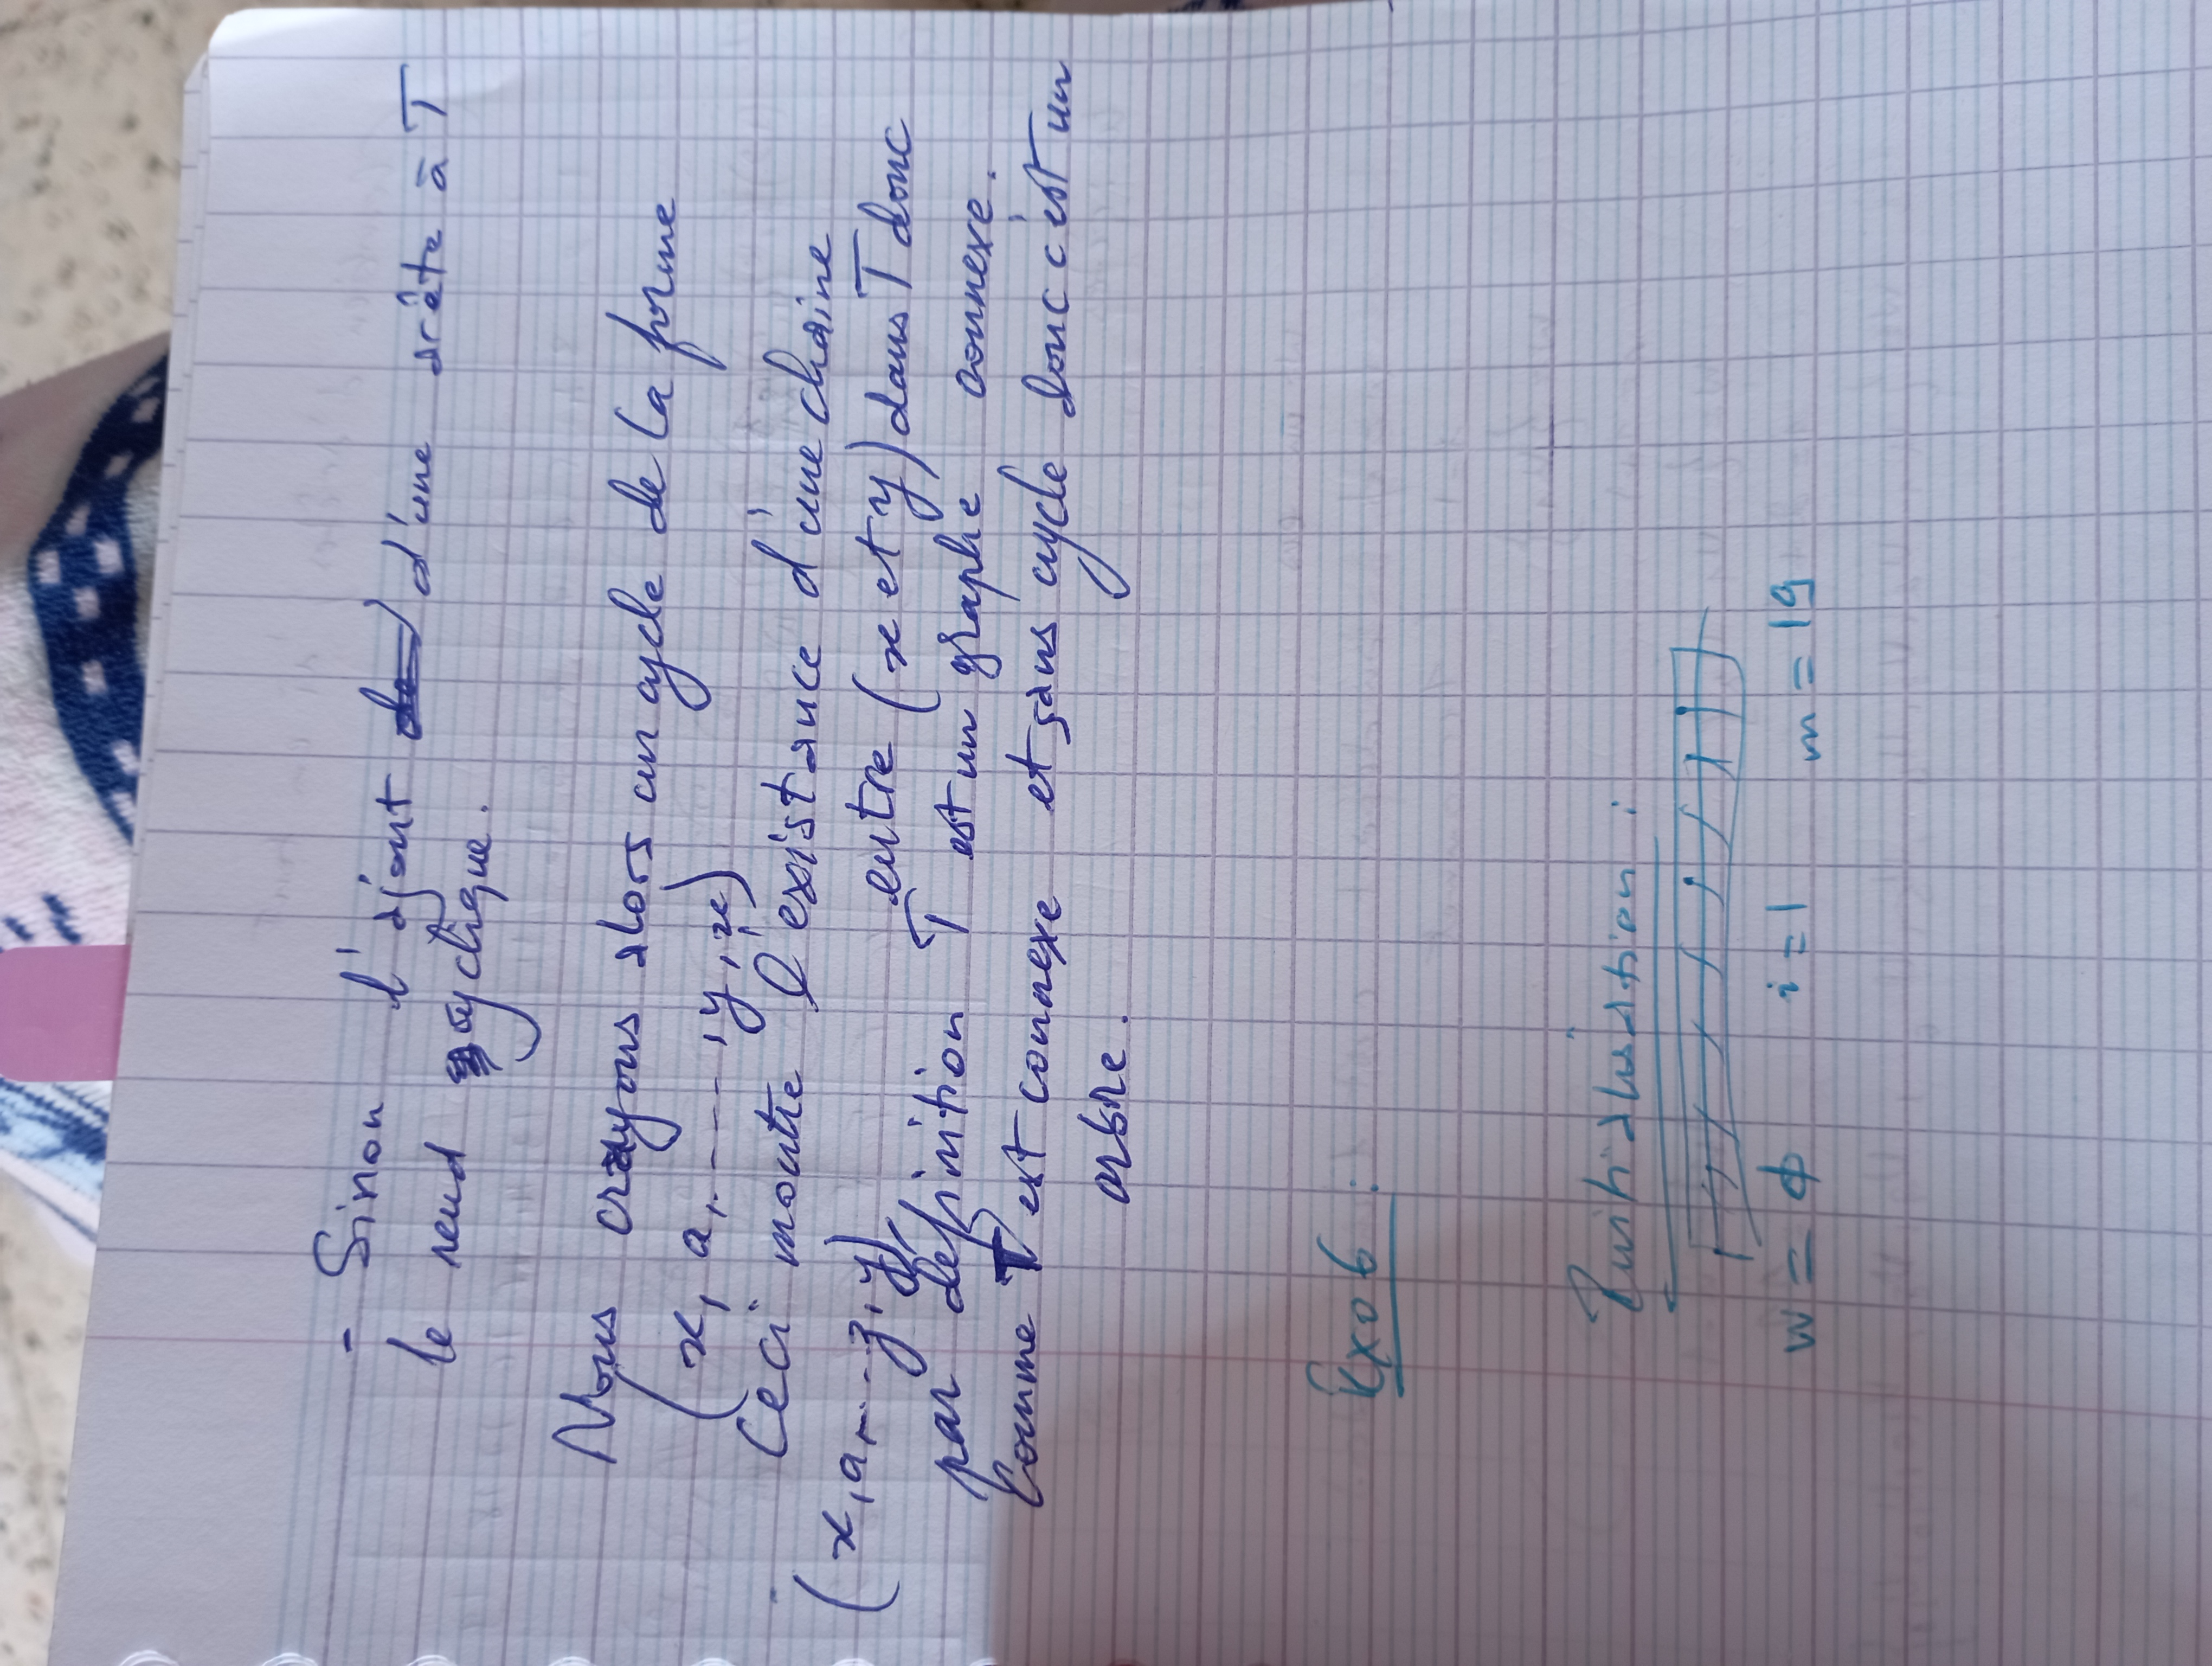 - Sinon l'ajout d'une arête à T
le rend cyclique.
Nous crayons alors un cycle de la forme
(x, a, ----, y, x)
Ceci montre l'existance d'une chaine
(x, a, ... z, y) entre (x et y) dans T donc
par définition T est un graphe connexe.
Comme T est connexe et sans cycle donc c'est un
arbre.
Exo 6 :
Initialisation :
w = ϕ i = 1 m = 19